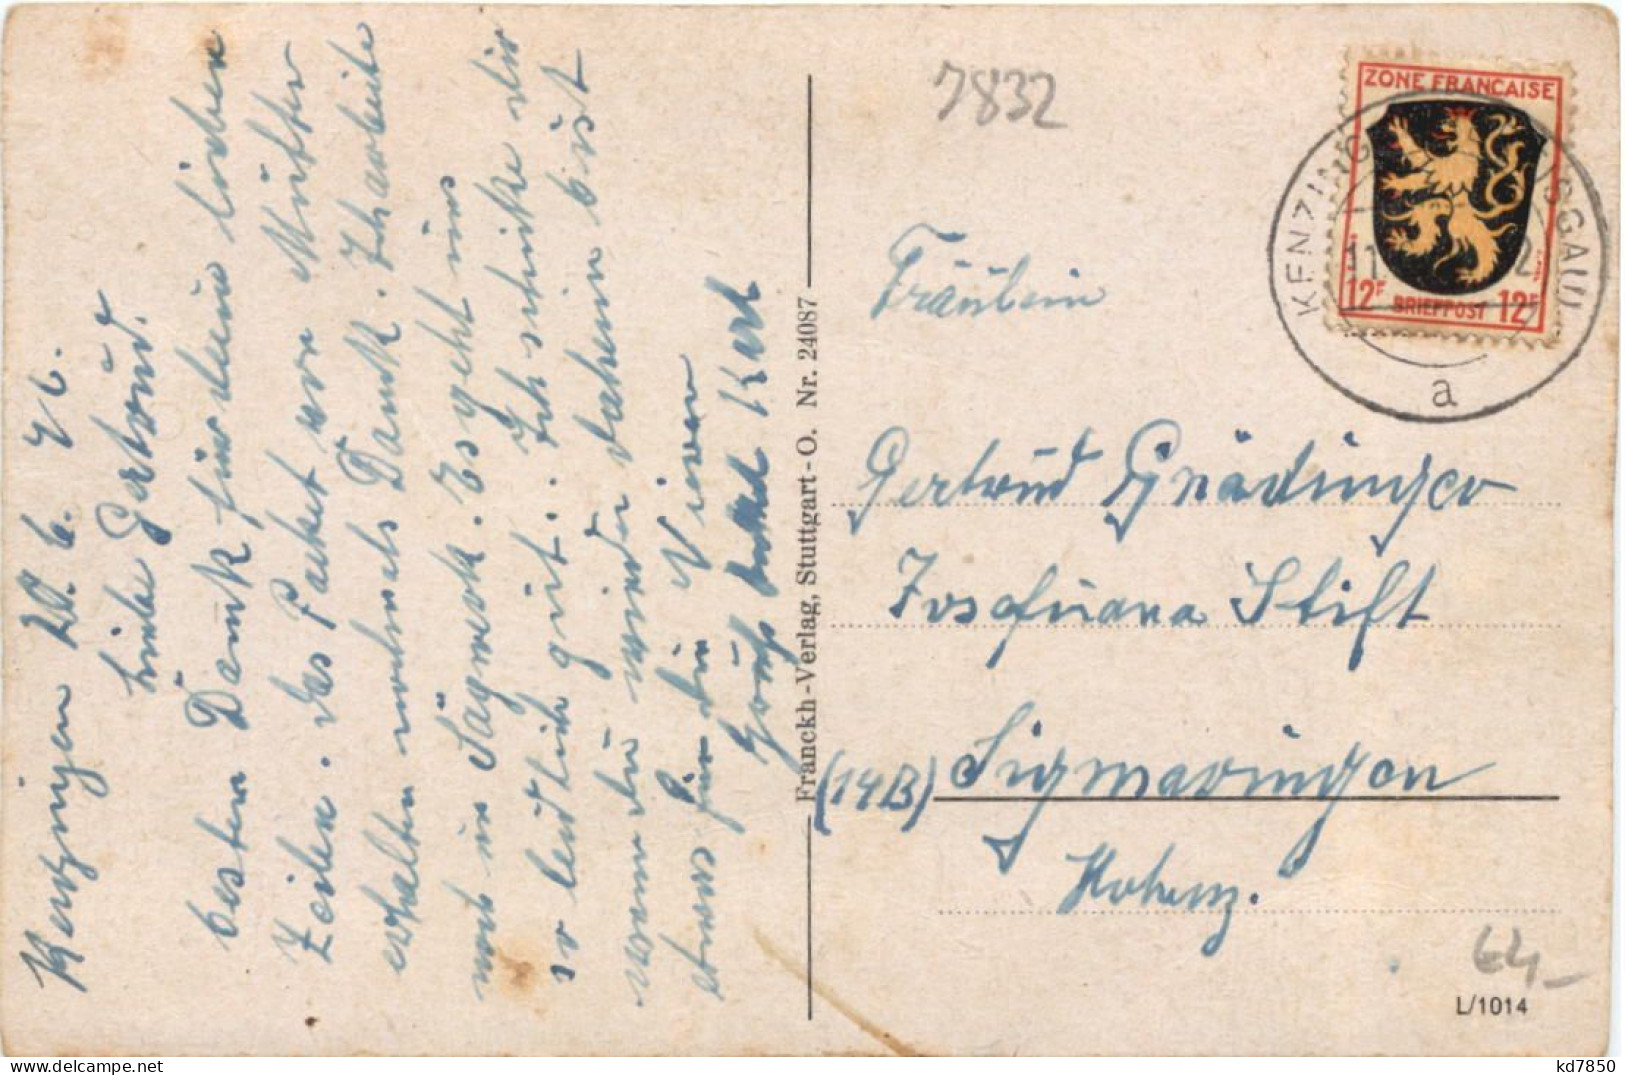 Kenzingen 20. 6. 46.
Liebe Gertrud.
besten Dank für deine lieben
Zeilen. das Packet von Mutter
erhalten nochmals Dank. Ich arbeite
noch im Sägwerk. Es geht uns
so leidlich gut. Ich schicke dir
wenn du wieder daheim bist
etwas für die Nieren
Grüß Karl
7832
ZONE FRANÇAISE
12F BRIEFPOST 12F
KENZINGEN (BREISGAU)
a
Fräulein
Gertrud Gnädinger
Josefinana Stift
(14B) Sigmaringen
Hohenz.
Franckh-Verlag, Stuttgart-O. Nr. 24087
E4,-
L/1014
kd7850